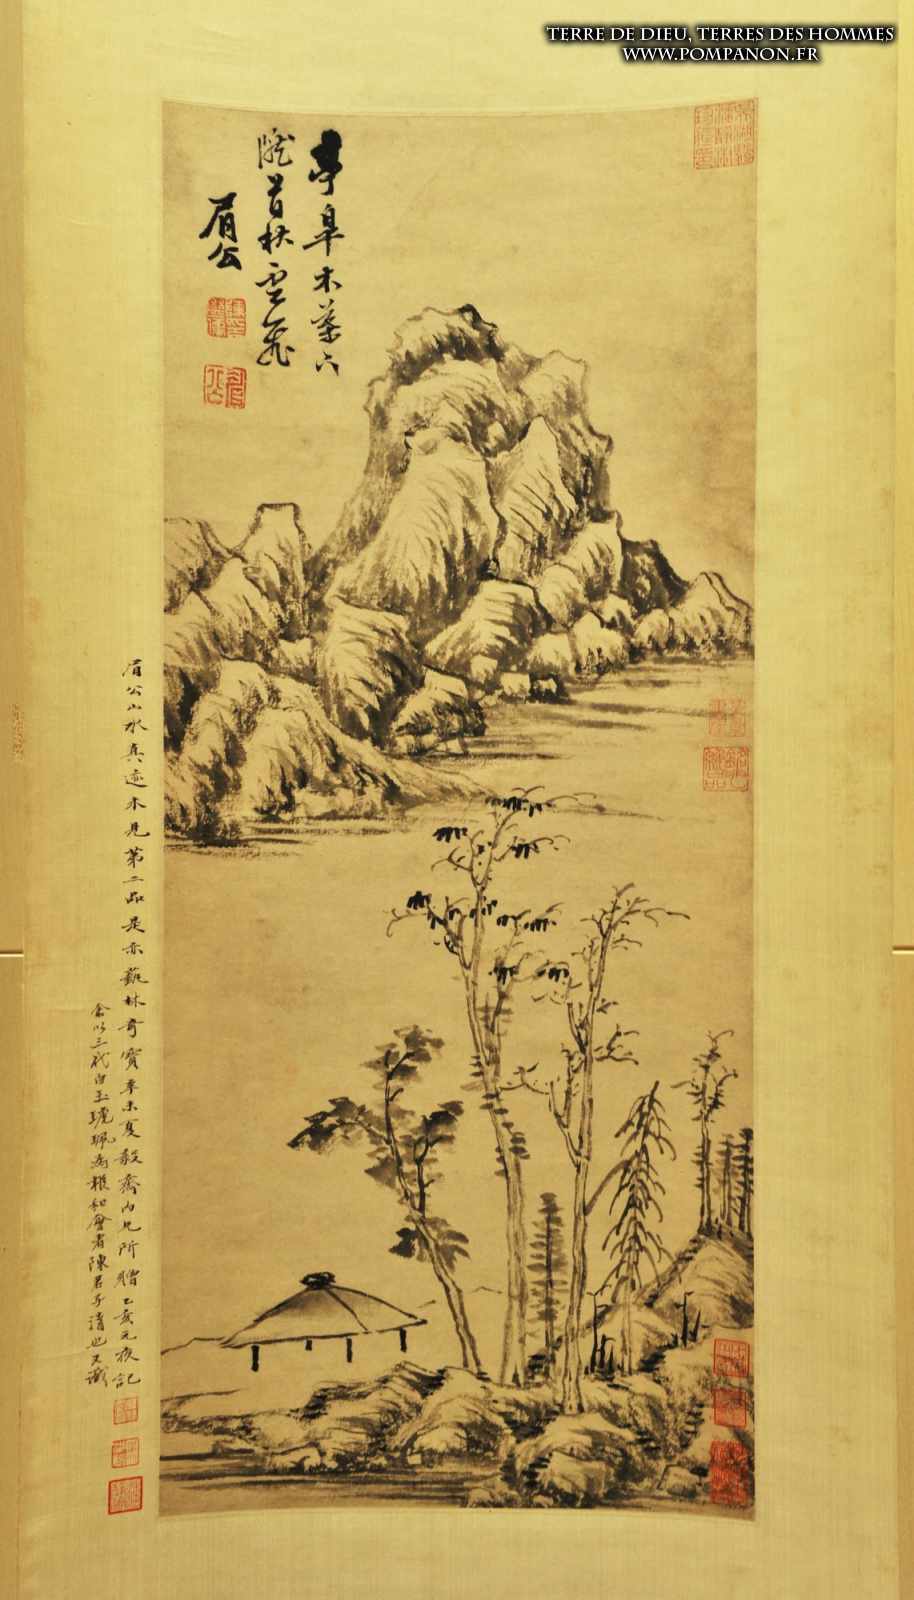 TERRE DE DIEU, TERRES DES HOMMES
WWW.POMPANON.FR
亭皋木葉下
隴首秋雲飛
眉公
眉公山水真迹木見第二品是亦藝林奇寶辛未夏毅齋內兄所贈乙亥元夜記
余以三代白玉琥珮為報和會者陳君子清也又識